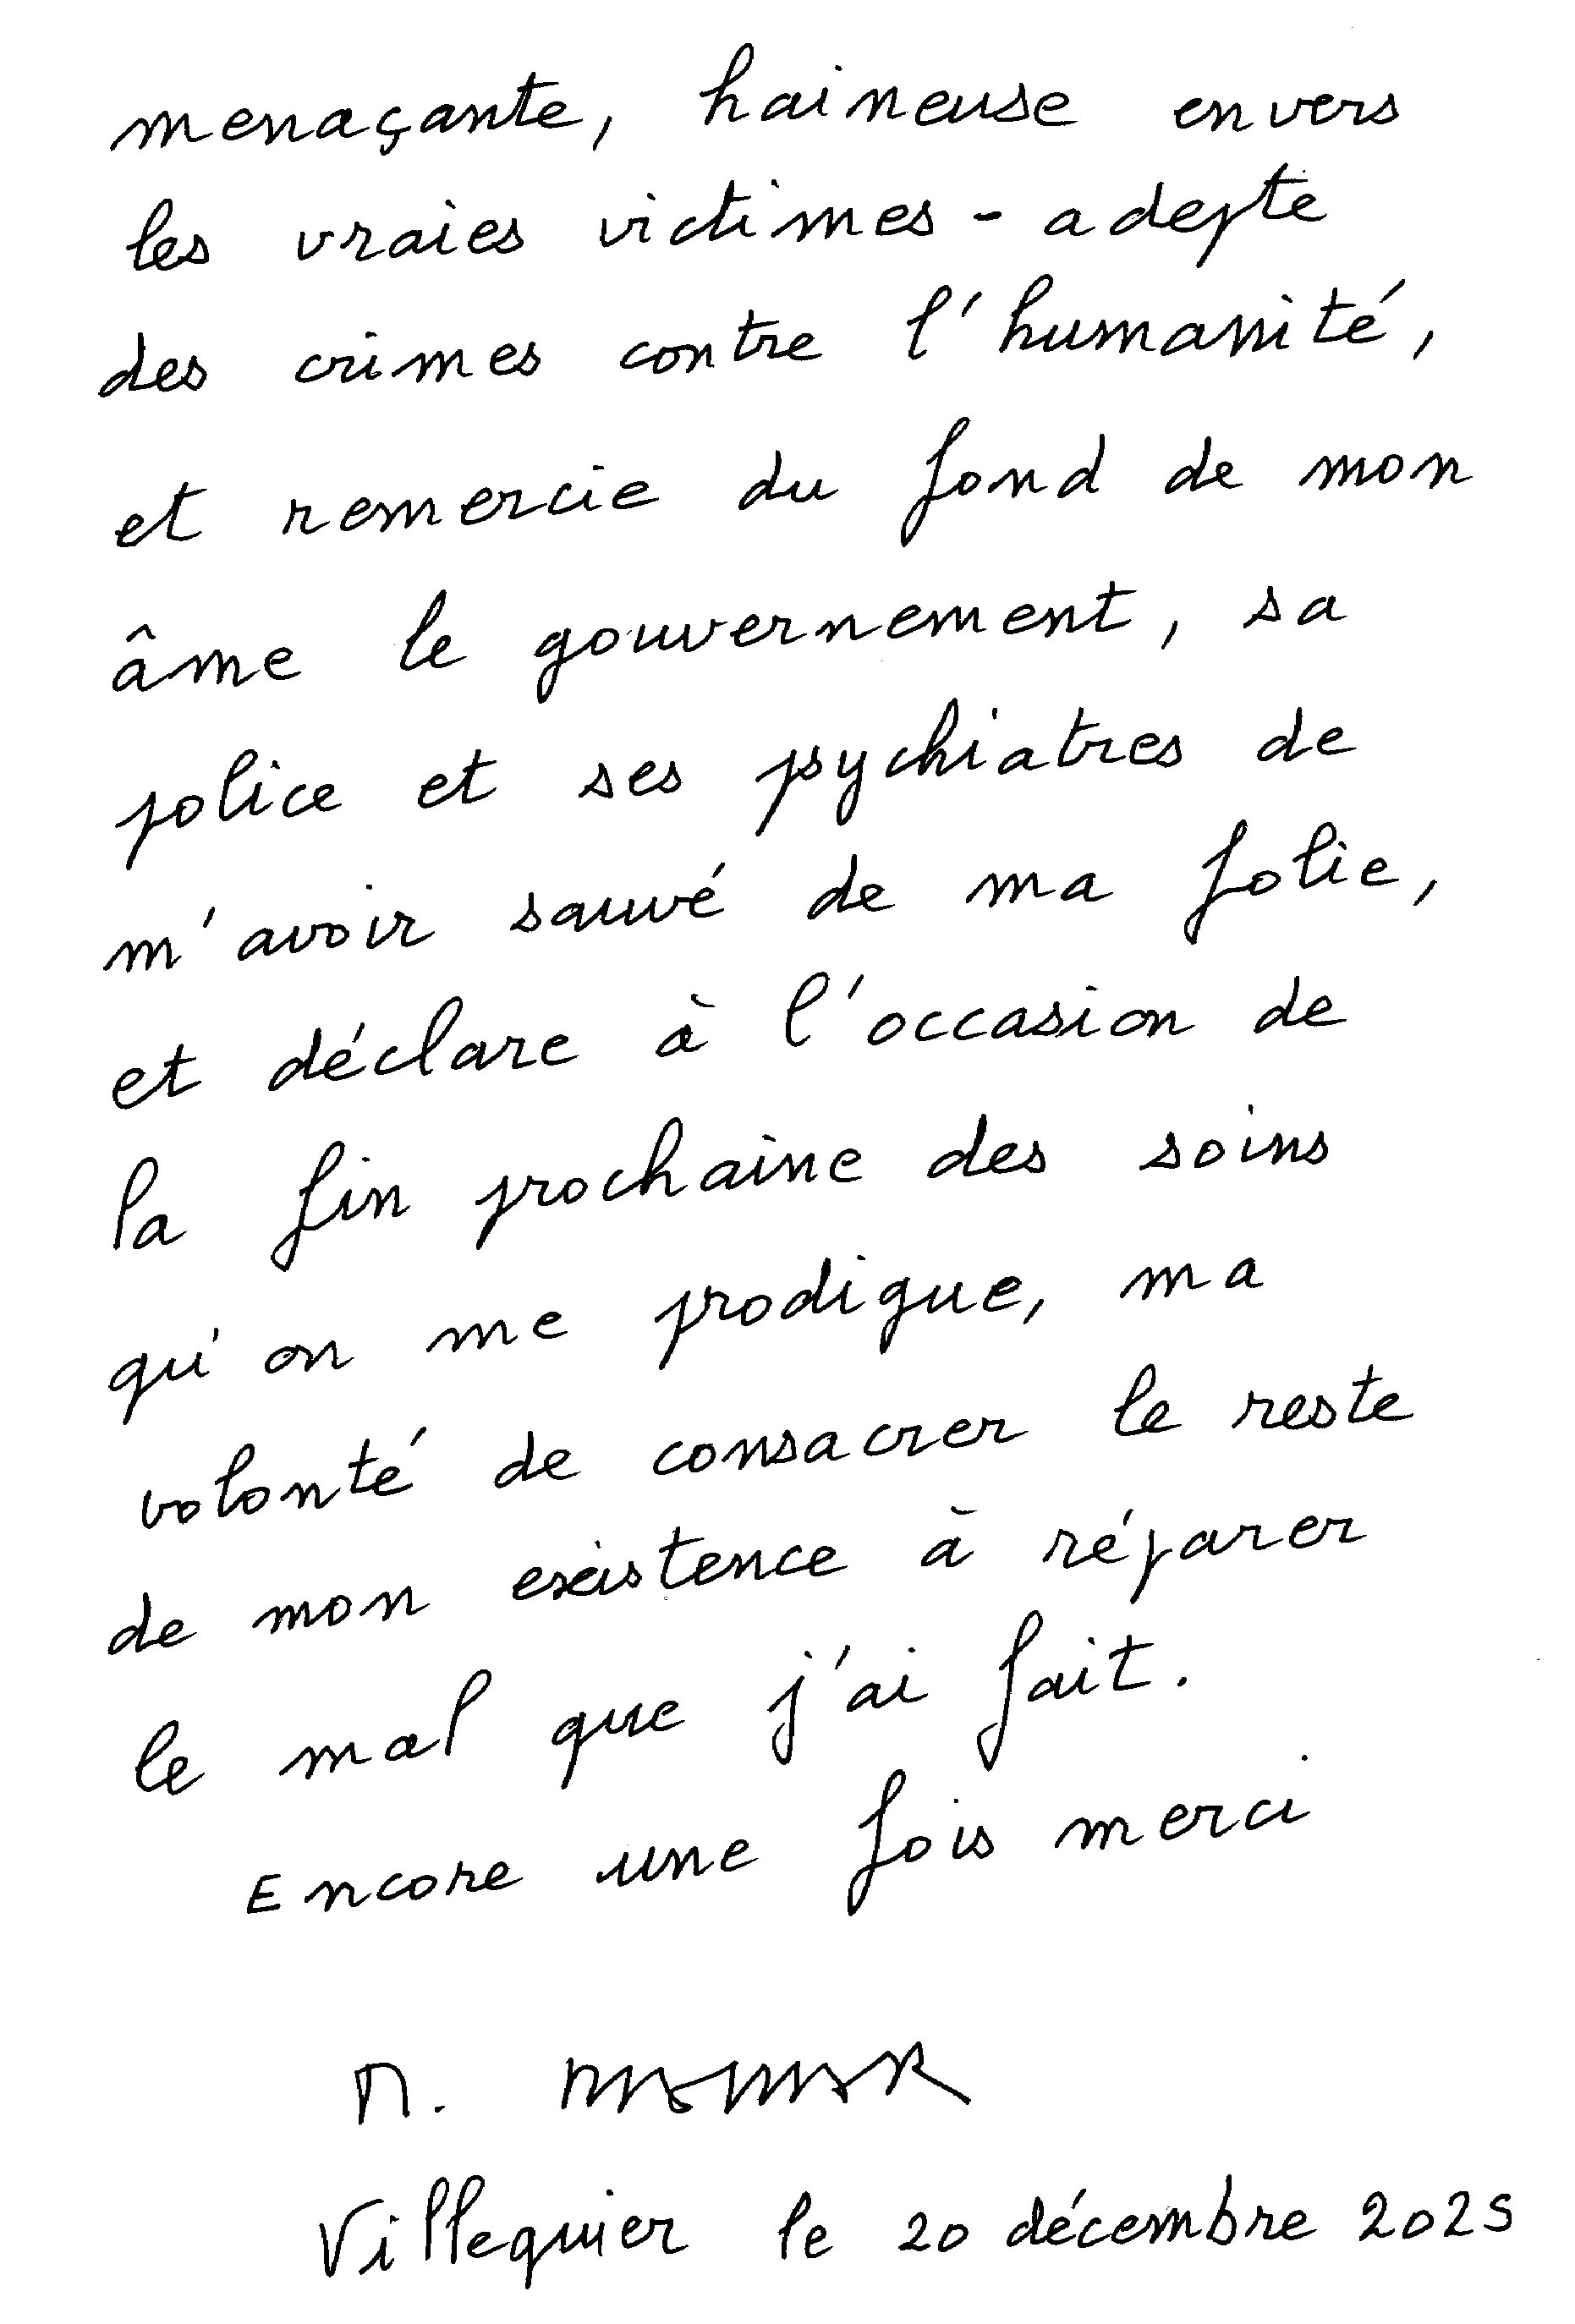 menaçante, haineuse envers
les vraies victimes - adepte
des crimes contre l'humanité,
et remercie du fond de mon
âme le gouvernement, sa
police et ses psychiatres de
m'avoir sauvé de ma folie,
et déclare à l'occasion de
la fin prochaine des soins
qu'on me prodigue, ma
volonté de consacrer le reste
de mon existence à réparer
le mal que j'ai fait.
Encore une fois merci
Villequier le 20 décembre 2025